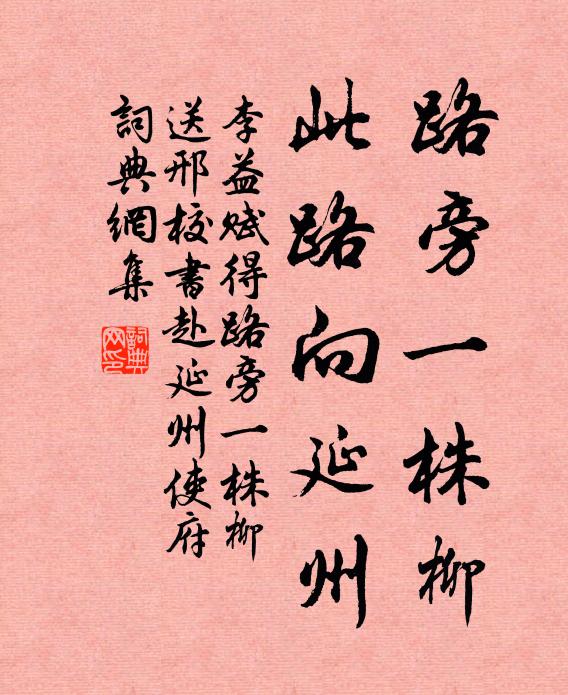 路旁一株柳
此路向延州
李益赋得路旁一株柳
送邢校書赴延州使府
詞典網集
詞典
网印